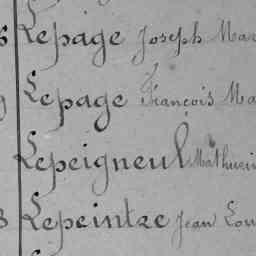 Lepage Joseph Mar
Lepage François Ma
Lepeigneul Mathurin
Lepeintre Jean Lou